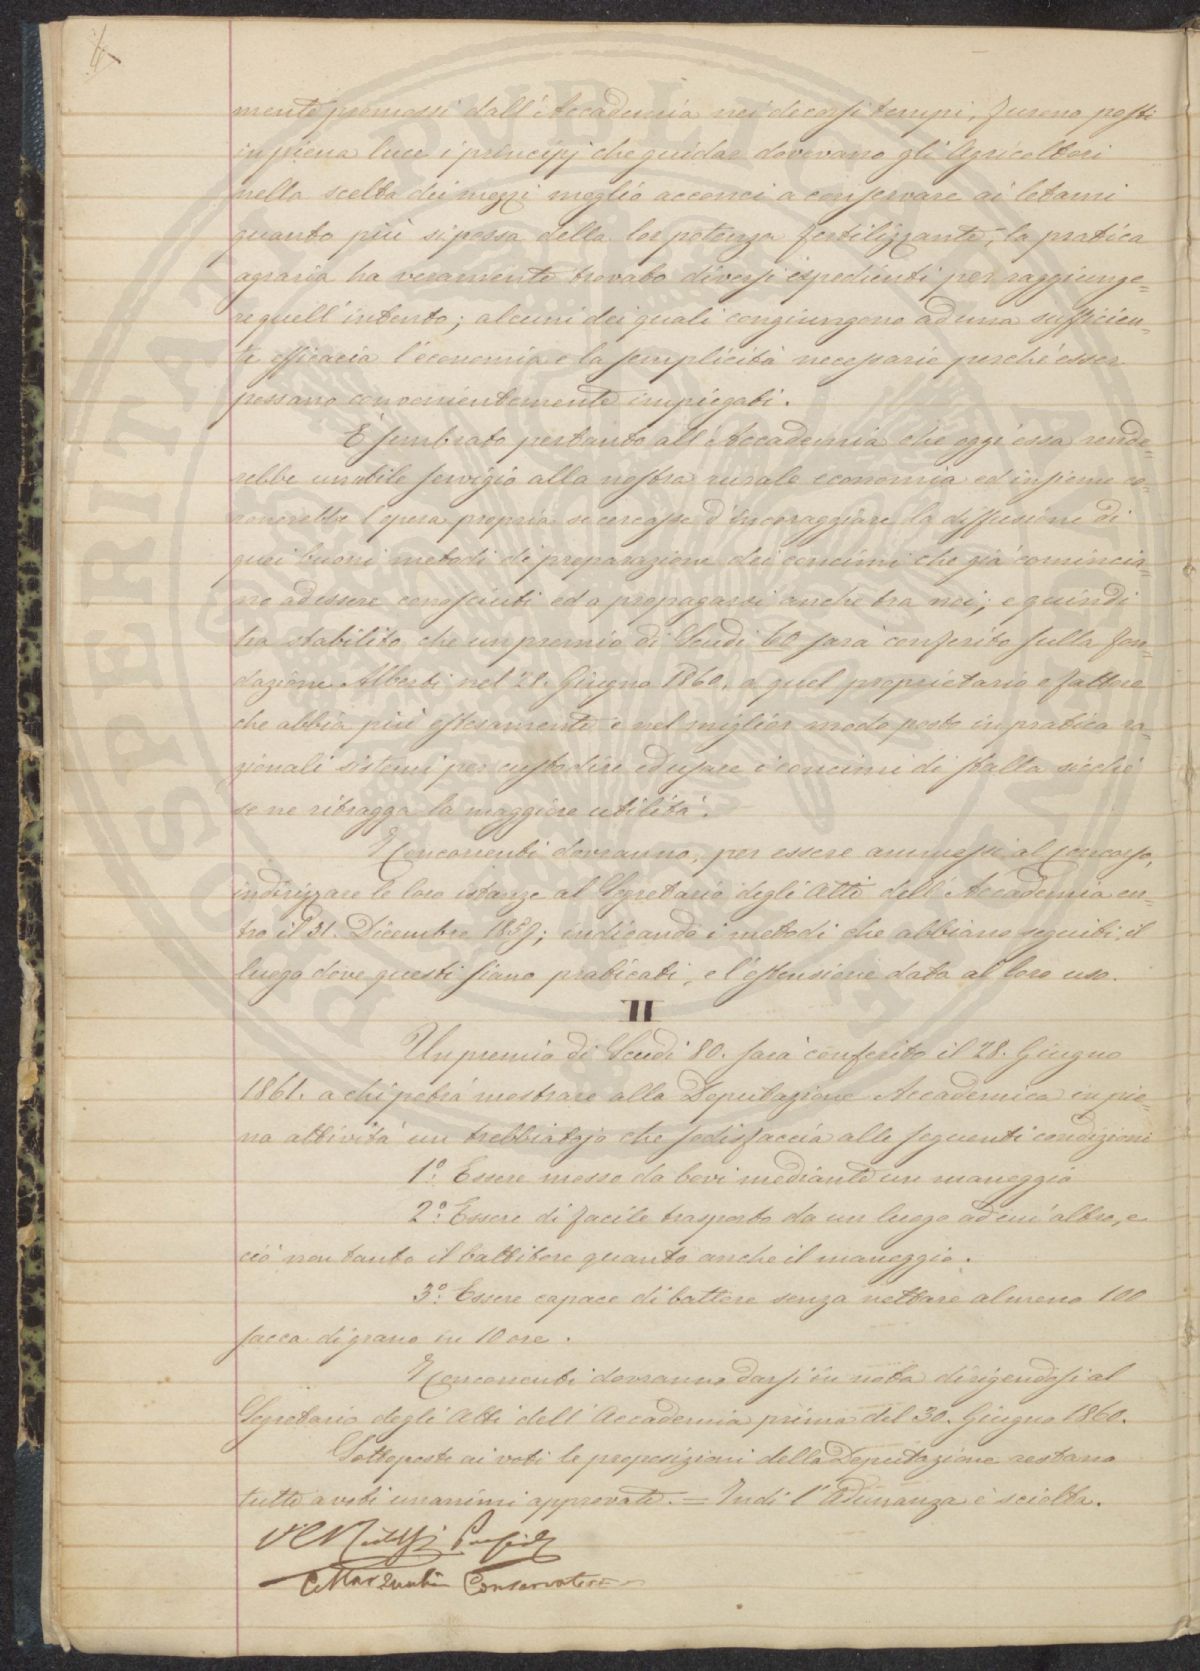 mente promossi dall'Accademia nei decorsi tempi, furono posti
in piena luce i principj che guidar dovevano gli Agricoltori
nella scelta dei mezzi meglio acconci a conservare ai letami
quanto più si possa della lor potenza fertilizzante, la pratica
agraria ha veramente trovato diversi espedienti per raggiunge=
re quell'intento; alcuni dei quali congiungono ad una sufficien=
te efficacia l'economia e la semplicità necessarie perché esser
possano convenientemente impiegati.
È sembrato pertanto all'Accademia che oggi essa rende=
rebbe un utile servigio alla nostra rurale economia ed insieme co=
ronerebbe l'opera propria se cercasse d'incoraggiare la diffusione di
quei buoni metodi di preparazione dei concimi che già comincia=
no ad essere conosciuti ed a propagarsi anche tra noi; e quindi
ha stabilito che un premio di Scudi 60 sarà conferito sulla fon=
dazione Alberti nel 28. Giugno 1860, a quel proprietario o fattore
che abbia più estesamente e nel miglior modo posto in pratica ra=
zionali sistemi per custodire ed usare i concimi di stalla sicché
se ne ritragga la maggiore utilità.
I Concorrenti dovranno, per essere ammessi al Concorso,
indirizzare le loro istanze al Segretario degli Atti dell'Accademia en=
tro il 31. Dicembre 1859; indicando i metodi che abbiano seguiti, il
luogo dove questi siano praticati, e l'estensione data al loro uso.
II
Un premio di Scudi 80. sarà conferito il 28. Giugno
1861. a chi potrà mostrare alla Deputazione Accademica in pie=
na attività un trebbiatojo che sodisfaccia alle seguenti condizioni
1.° Essere mosso da bovi mediante un maneggio
2.° Essere di facile trasporto da un luogo ad un'altro, e
ciò non tanto il battitore quanto anche il maneggio.
3.° Essere capace di battere senza nettare almeno 100
sacca di grano in 10 ore.
I Concorrenti dovranno darsi in nota dirigendosi al
Segretario degli Atti dell'Accademia prima del 30. Giugno 1860.
Sottoposte ai voti le proposizioni della Deputazione restano
tutte a voti unanimi approvate. = Indi l'Adunanza è sciolta.
V° C Ridolfi Preside
C. Conservatore
PROSPERITATI PVBLICAE AVGENDAE